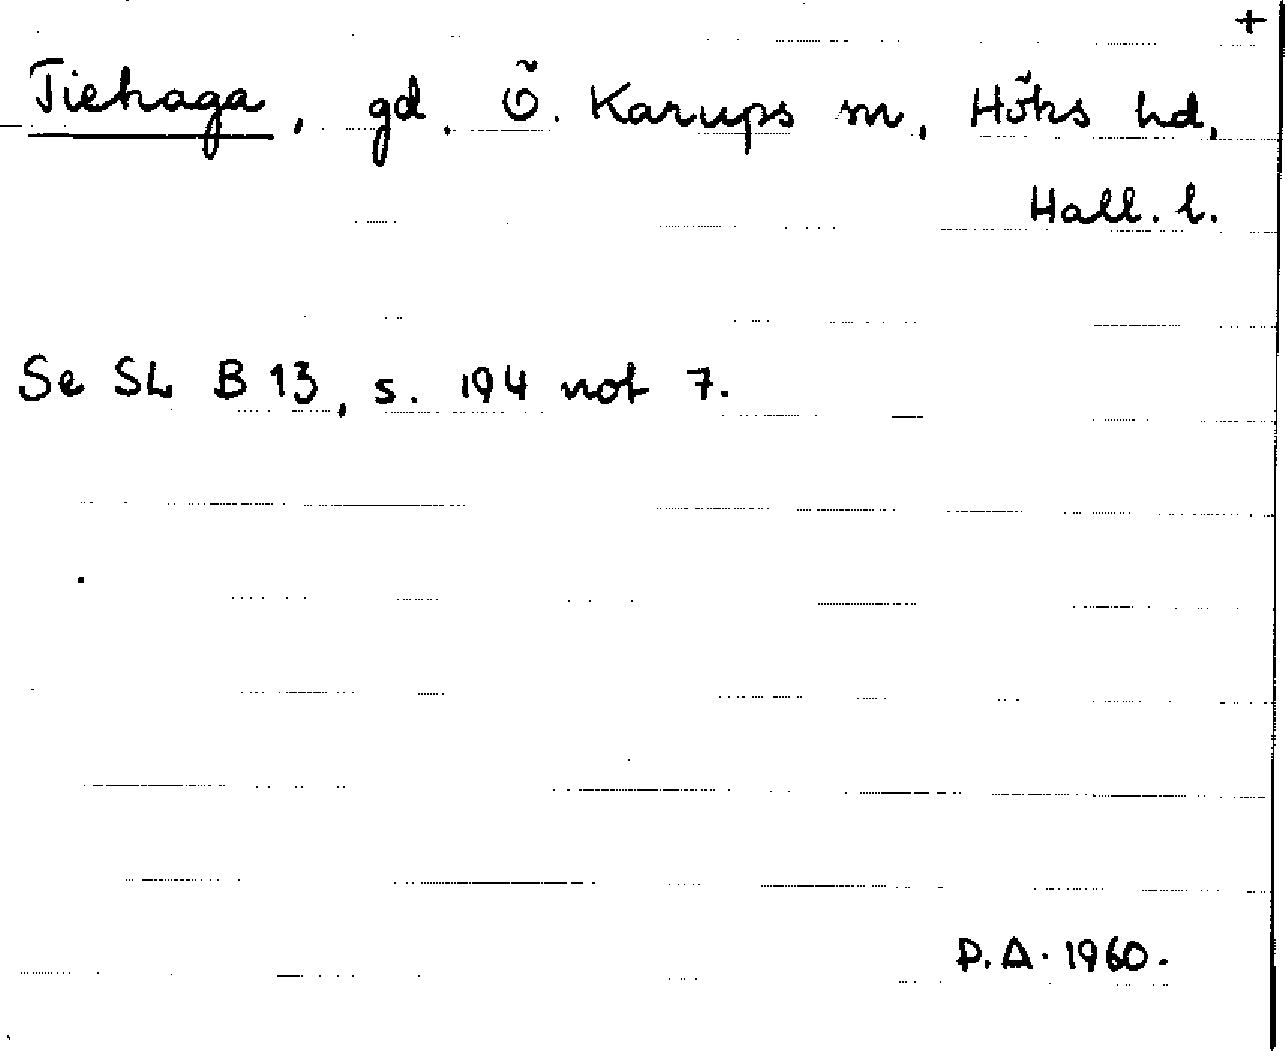 +
Tiehaga, gd. Ö. Karups sn, Höks hd,
Hall. l.
Se SL B 13, s. 194 not 7.
P.A. 1960.